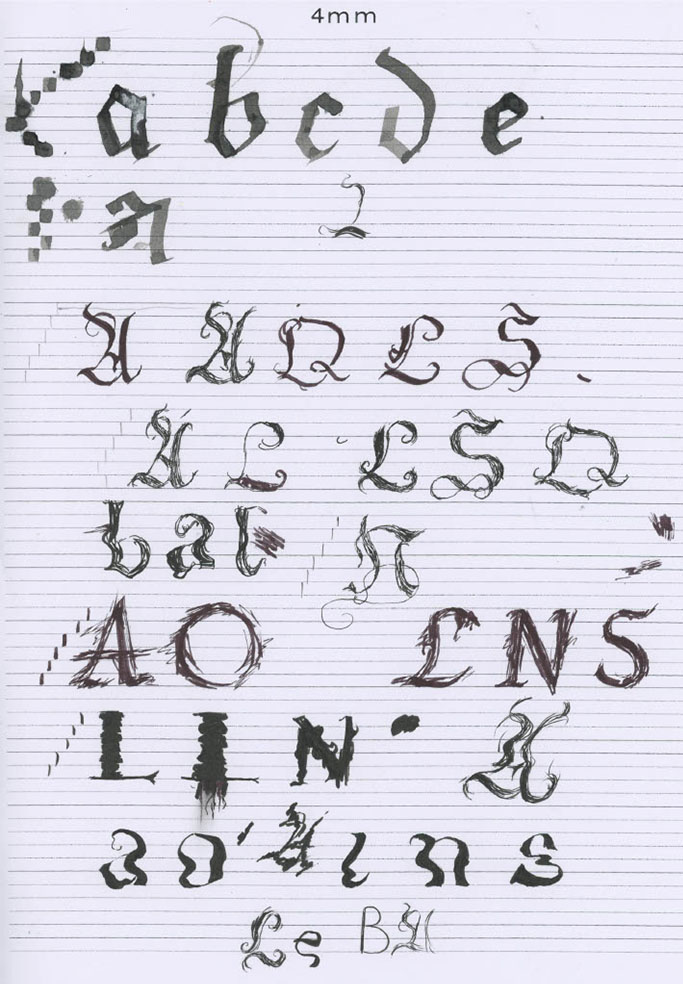 4mm
a b c d e
a 2
A A Q L S
A L L S Q
b a b A
A O L N S
L I N A
a o A i n s
L e B A